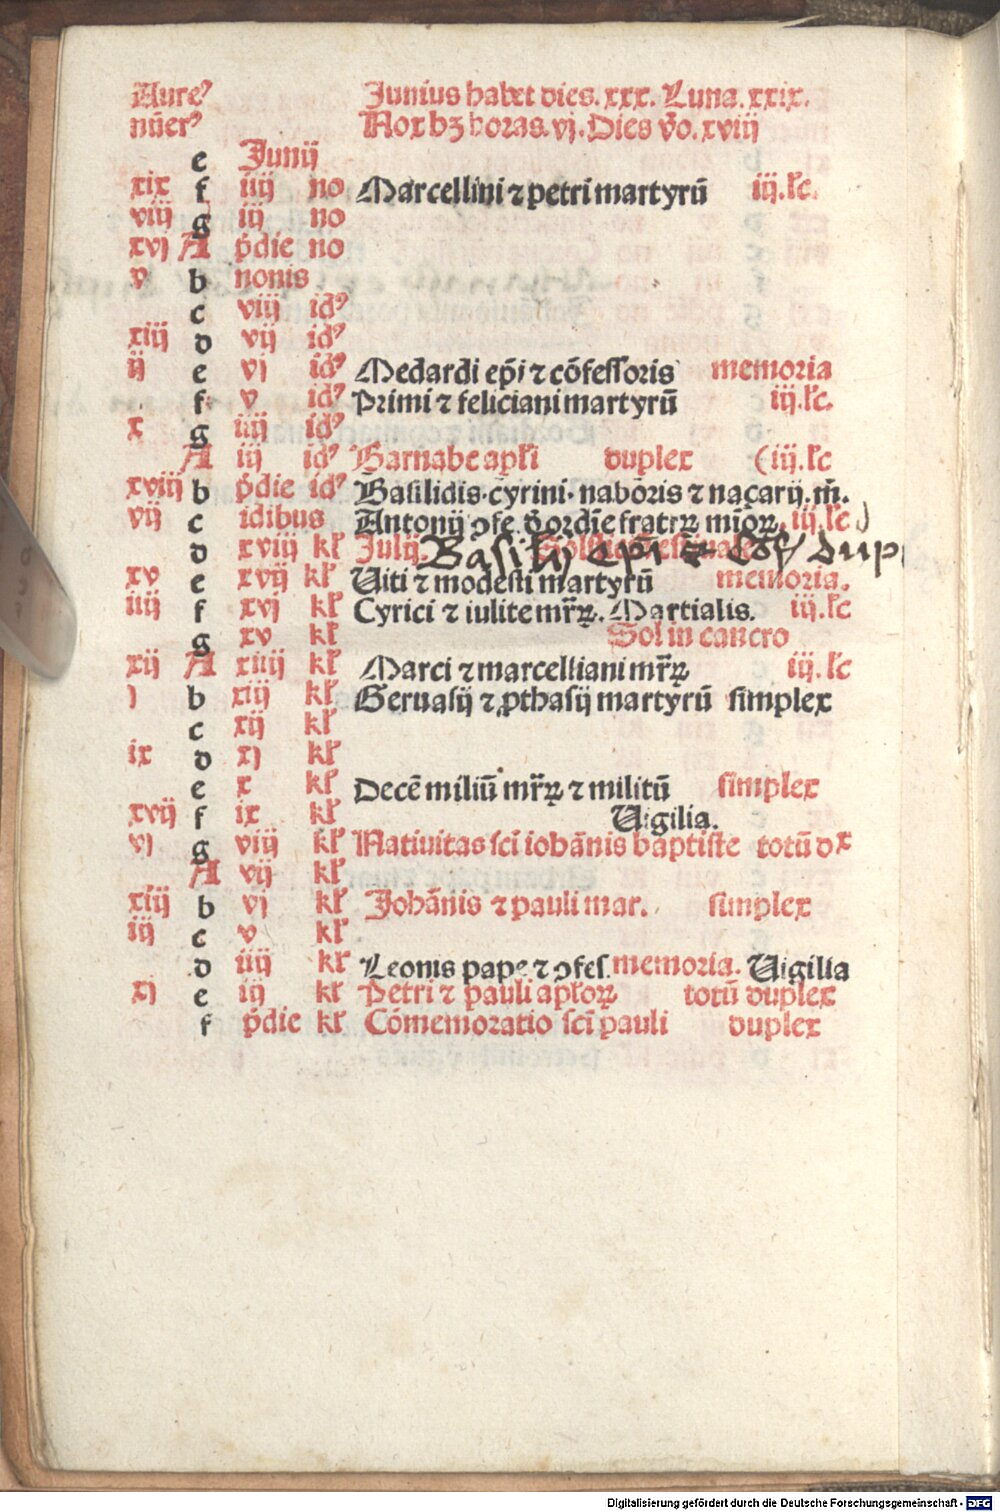 Aureꝰ Junius habet dies. xxx. Luna. xxix.
nūerꝰ Nox hꝫ horas. vj. Dies v̄o. xviij
e Junij
xix f iiij no Marcellini ⁊ petri martyrū iij. lc̄.
viij g iij no
xvj A p̄die no
v b nonis
c viij idꝰ
xiij d vij idꝰ
ij e vj idꝰ Medardi ep̄i ⁊ cōfessoris memoria
f v idꝰ Primi ⁊ feliciani martyrū iij. lc̄.
x g iiij idꝰ
A iij idꝰ Barnabe apl̄i duplex (iij. lc̄
xviij b p̄die idꝰ Basilidis. cyrini. naboris ⁊ naçarij. m̄.
vij c idibus Antonij ꝯfe. d̄ ordīe fratrꝝ mīoꝝ. iij. lc̄)
d xviij kl̄ Julij. Solsticiū estiuale
Basilij ep̄i ⁊ Cōf dup
xv e xvij kl̄ Uiti ⁊ modesti martyrū memoria.
iiij f xvj kl̄ Cyrici ⁊ iulite mr̄ꝝ. Martialis. iij. lc̄
g xv kl̄ Sol in cancro
xij A xiiij kl̄ Marci ⁊ marcelliani mr̄ꝝ iij. lc̄
j b xiij kl̄ Geruasij ⁊ ꝓthasij martyrū simplex
c xij kl̄
ix d xj kl̄
e x kl̄ Decē miliū mr̄ꝝ ⁊ militū simplex
xvij f ix kl̄ Uigilia.
vj g viij kl̄ Natiuitas sc̄i iohānis baptiste totū dx
A vij kl̄
xiij b vj kl̄ Johānis ⁊ pauli mar. simplex
iij c v kl̄
d iiij kl̄ Leonis pape ⁊ ꝯfes. memoria. Uigilia
xj e iij kl̄ Petri ⁊ pauli apl̄oꝝ totū duplex
f p̄die kl̄ Cōmemoratio sc̄i pauli duplex
Digitalisierung gefördert durch die Deutsche Forschungsgemeinschaft - DFG